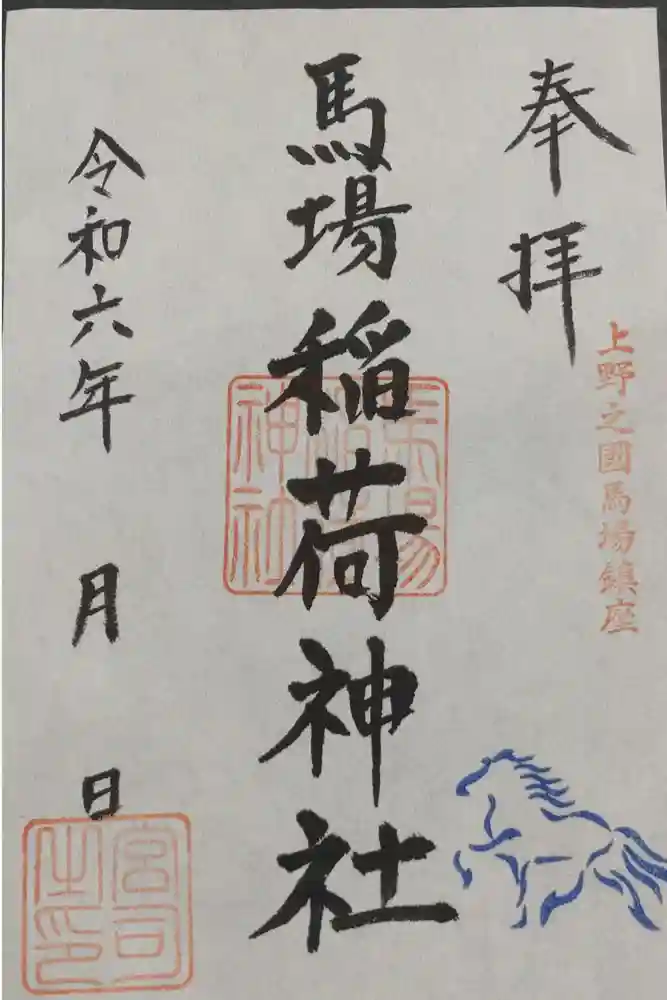 奉拝
上野之國馬場鎮座
馬場稲荷神社
馬場稲荷神社
令和六年 月 日
宮司之印